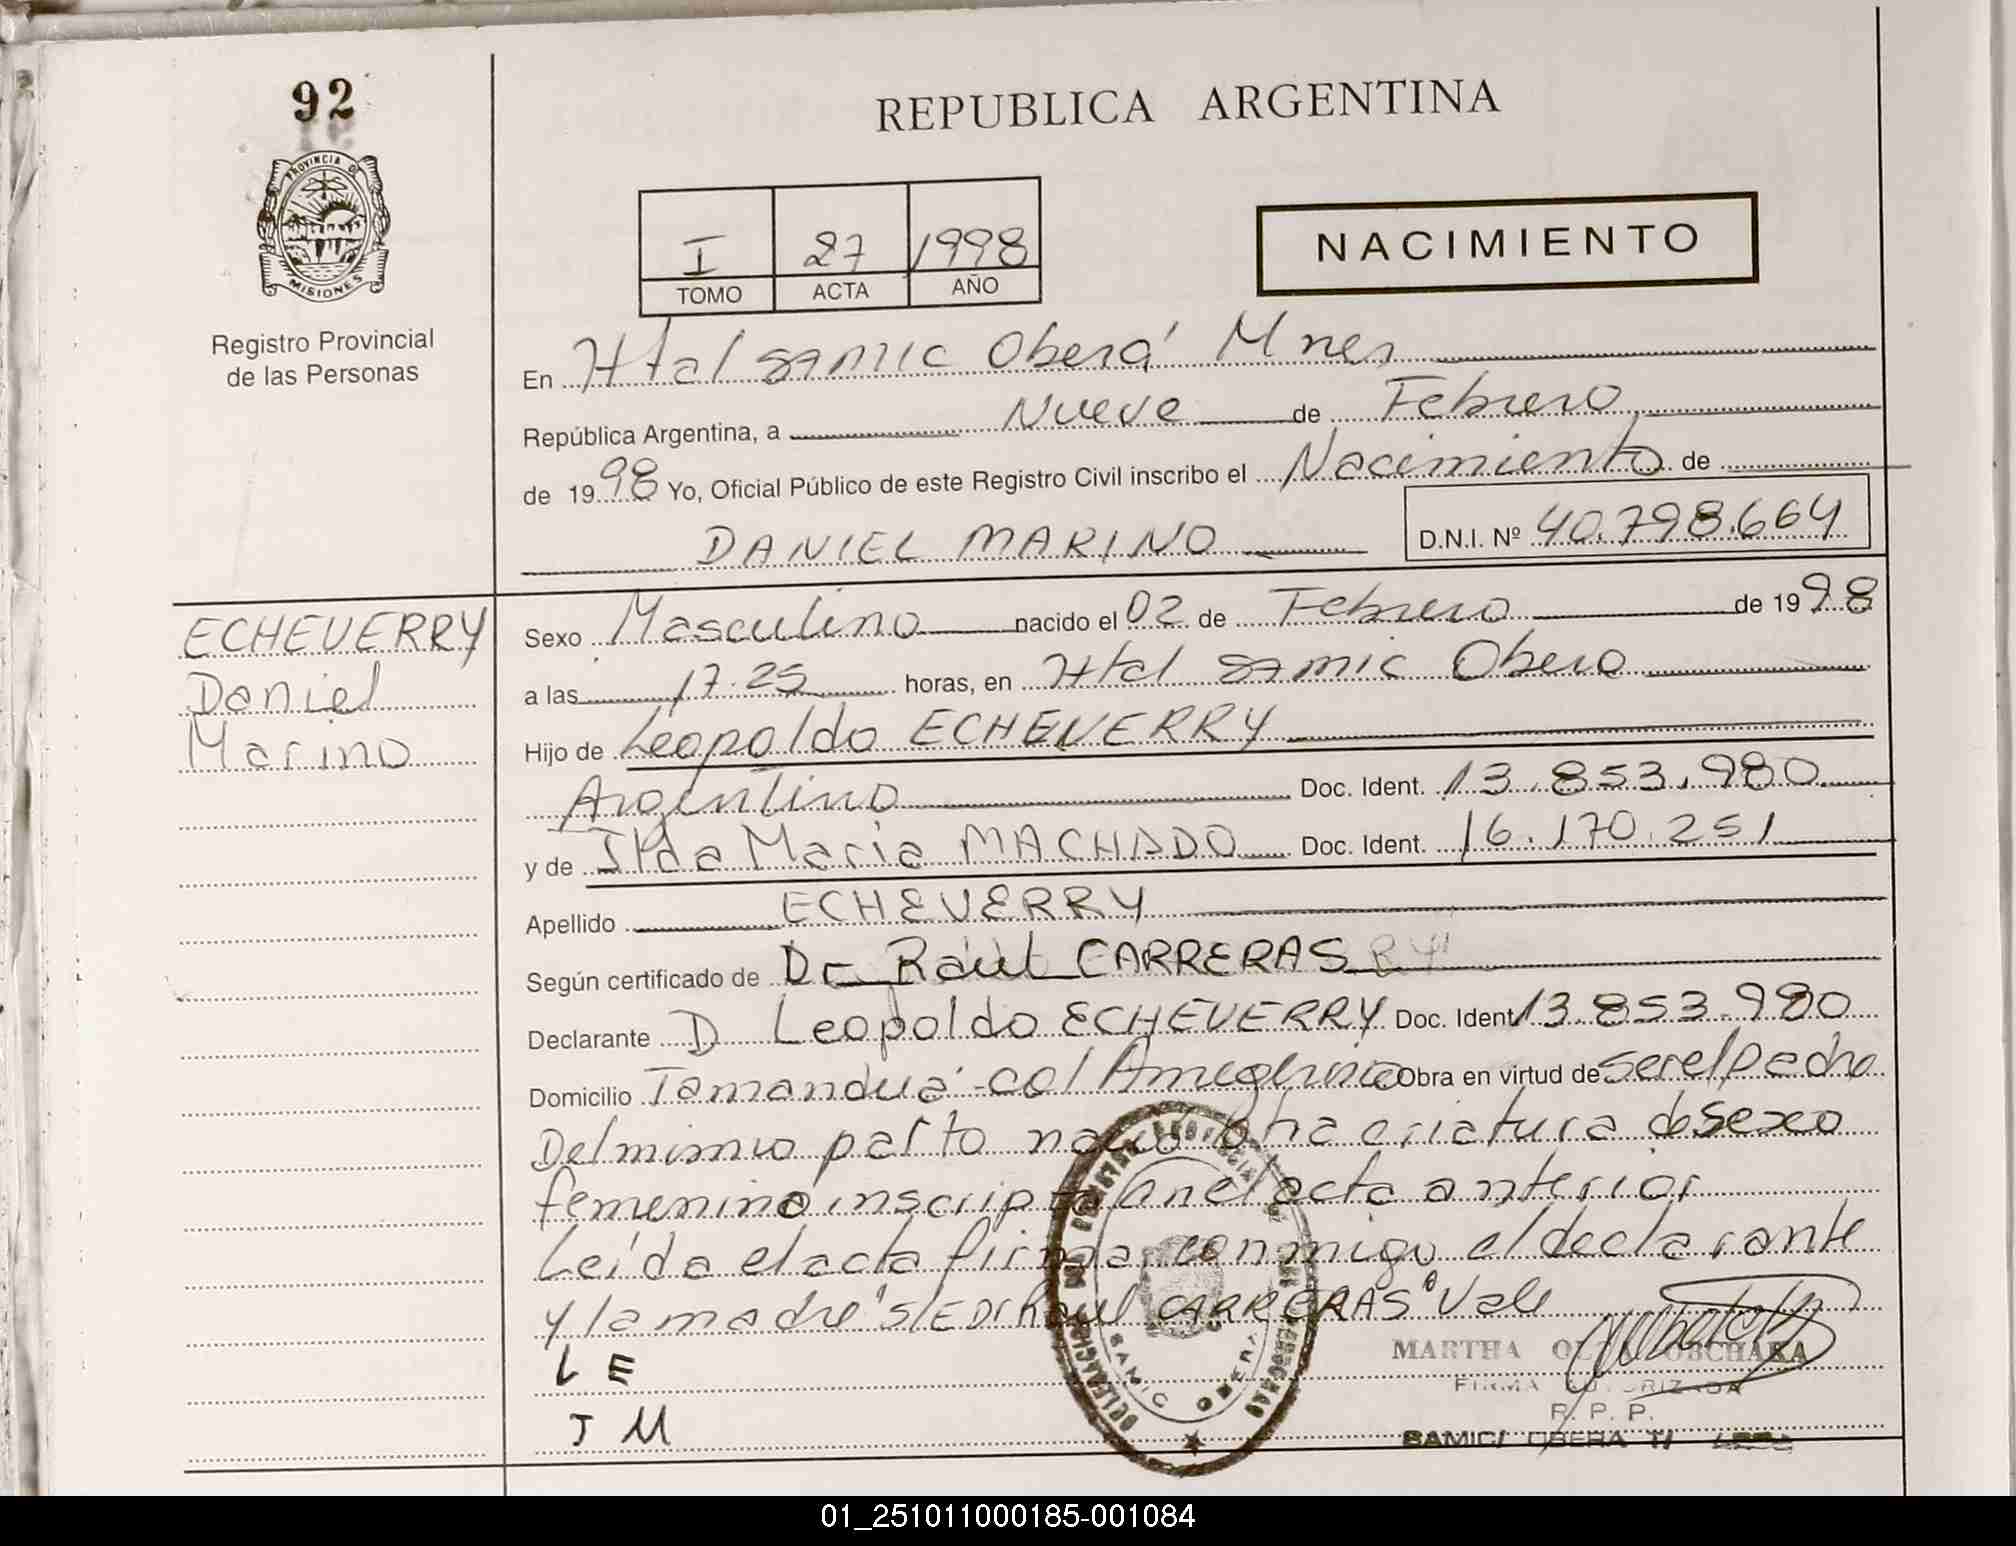 92
PROVINCIA DE
MISIONES
Registro Provincial
de las Personas
REPUBLICA ARGENTINA
I 27 1998
TOMO ACTA AÑO
NACIMIENTO
En Htal SAMIC Oberá Mnes
República Argentina, a Nueve de Febrero
de 1998 Yo, Oficial Público de este Registro Civil inscribo el Nacimiento de
DANIEL MARINO D.N.I. Nº 40.798.664
ECHEVERRY
Daniel
Marino
Sexo Masculino nacido el 02 de Febrero de 1998
a las 17.25 horas, en Htal SAMIC Obera
Hijo de Leopoldo ECHEVERRY
Argentino Doc. Ident. 13.853.980
y de Ilda Maria MACHADO Doc. Ident. 16.170.251
Apellido ECHEVERRY
Según certificado de Dr Raul CARRERAS
Declarante D Leopoldo ECHEVERRY Doc. Ident 13.853.980
Domicilio Tamanduá-col Ameghino Obra en virtud de ser el padre
Del mismo parto nació otra criatura de sexo
femenino inscripta en el acta anterior
Leída el acta firma conmigo el declarante
y la madre "S/E Dr Raul CARRERAS" Vale
L E
J M
SAMIC OBERA
MARTHA OLGA
FIRMA AUTORIZADA
R. P. P.
SAMIC/ OBERA
01_251011000185-001084